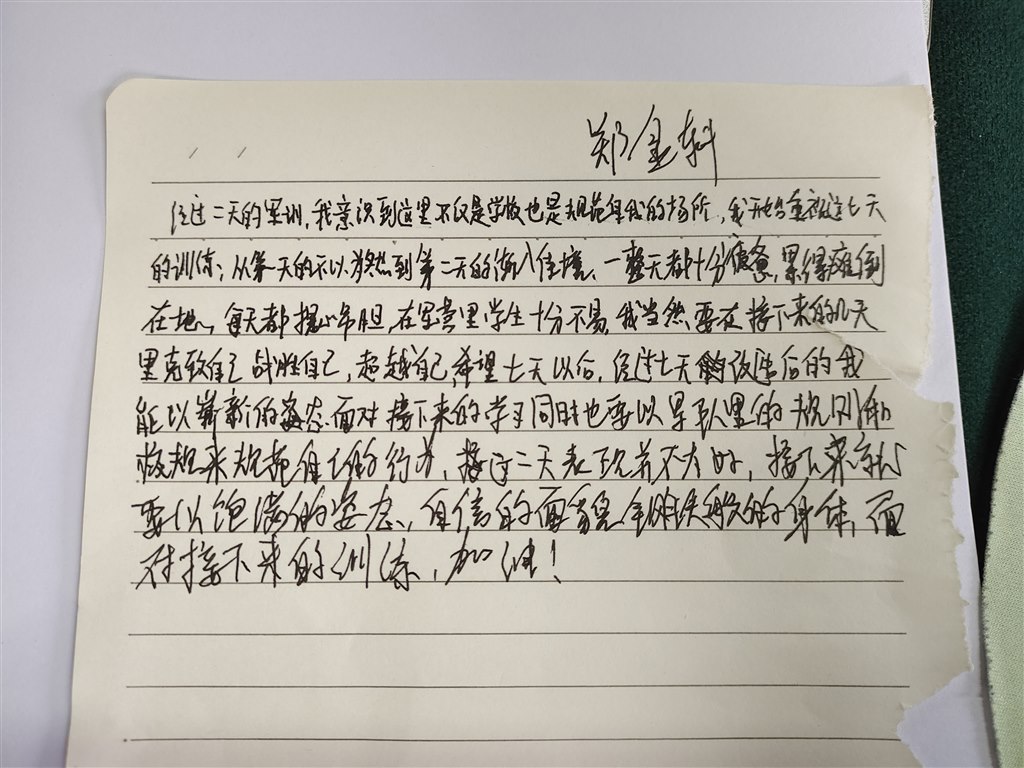 郑金科
经过二天的军训,我意识到这里不仅是学校也是规范自我的场所,我开始重视这七天
的训练;从第一天的不以为然到第二天的渐入佳境,一整天都十分疲惫,累得瘫倒
在地,每天都提心吊胆,在军营里学生十分不易,我当然要在接下来的几天
里克致自己战胜自己,超越自己,希望七天以后,经过七天的改造后的我
能以崭新的姿态面对接下来的学习同时也要以军队里的规则和
校规来规范自己的行为,接这二天表现并不太好,接下来
要以饱满的姿态,自信的面貌,钢铁般的身体,面
对接下来的训练,加油!